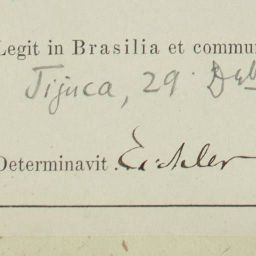 Legit in Brasilia et commu
Tijuca, 29
Determinavit. Eichler